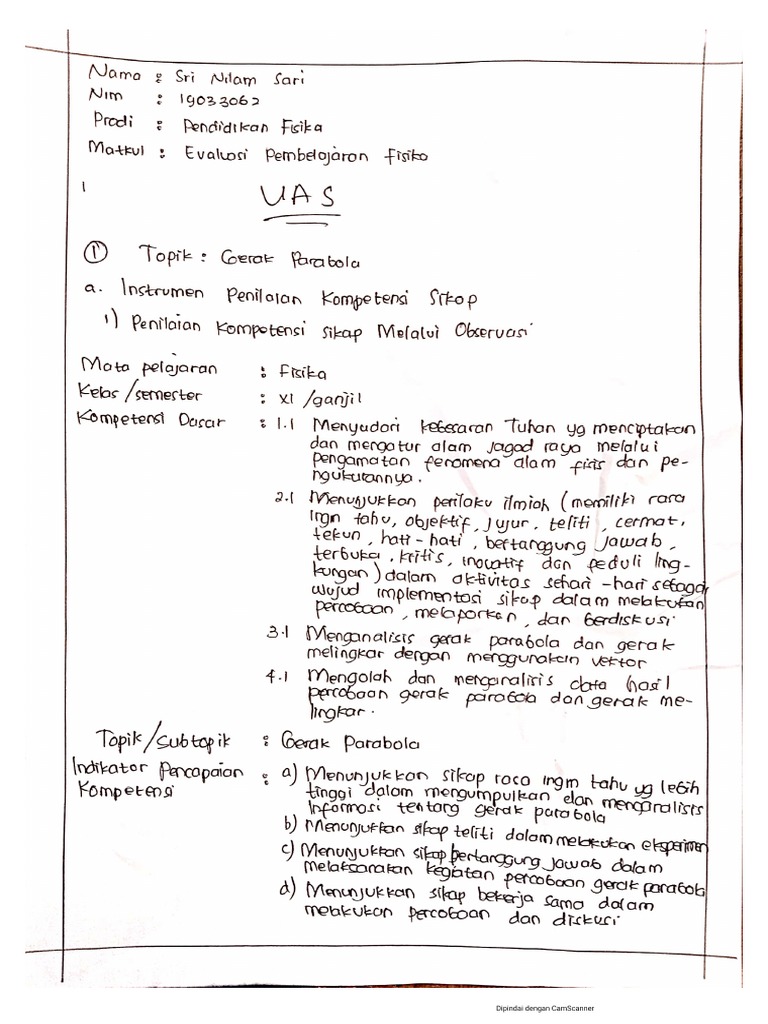 Nama : Sri Nilam Sari
Nim : 19033062
Prodi : Pendidikan Fisika
Matkul : Evaluasi Pembelajaran Fisika
1
UAS
1 Topik : Gerak Parabola
a. Instrumen Penilaian Kompetensi Sikap
1) Penilaian Kompetensi sikap Melalui Observasi
Mata pelajaran : Fisika
Kelas/semester : XI /ganjil
Kompetensi Dasar : 1.1 Menyadari kebesaran Tuhan yg menciptakan
dan mengatur alam jagad raya melalui
pengamatan fenomena alam fisis dan pe-
ngukurannya.
2.1 Menunjukkan perilaku ilmiah (memiliki rasa
ingin tahu, objektif, jujur, teliti, cermat,
tekun, hati-hati, bertanggung jawab,
terbuka, kritis, inovatif dan peduli ling-
kungan) dalam aktivitas sehari-hari sebagai
wujud implementasi sikap dalam melakukan
percobaan, melaporkan, dan berdiskusi
3.1 Menganalisis gerak parabola dan gerak
melingkar dengan menggunakan vektor
4.1 Mengolah dan menganalisis data hasil
percobaan gerak parabola dan gerak me-
lingkar.
Topik/Subtopik : Gerak Parabola
Indikator Pencapaian : a) Menunjukkan sikap rasa ingin tahu yg lebih
Kompetensi tinggi dalam mengumpulkan dan menganalisis
Informasi tentang gerak parabola
b) Menunjukkan sikap teliti dalam melakukan eksperimen
c) Menunjukkan sikap bertanggung jawab dalam
melaksanakan kegiatan percobaan gerak parabola
d) Menunjukkan sikap bekerja sama dalam
melakukan percobaan dan diskusi
Dipindai dengan CamScanner